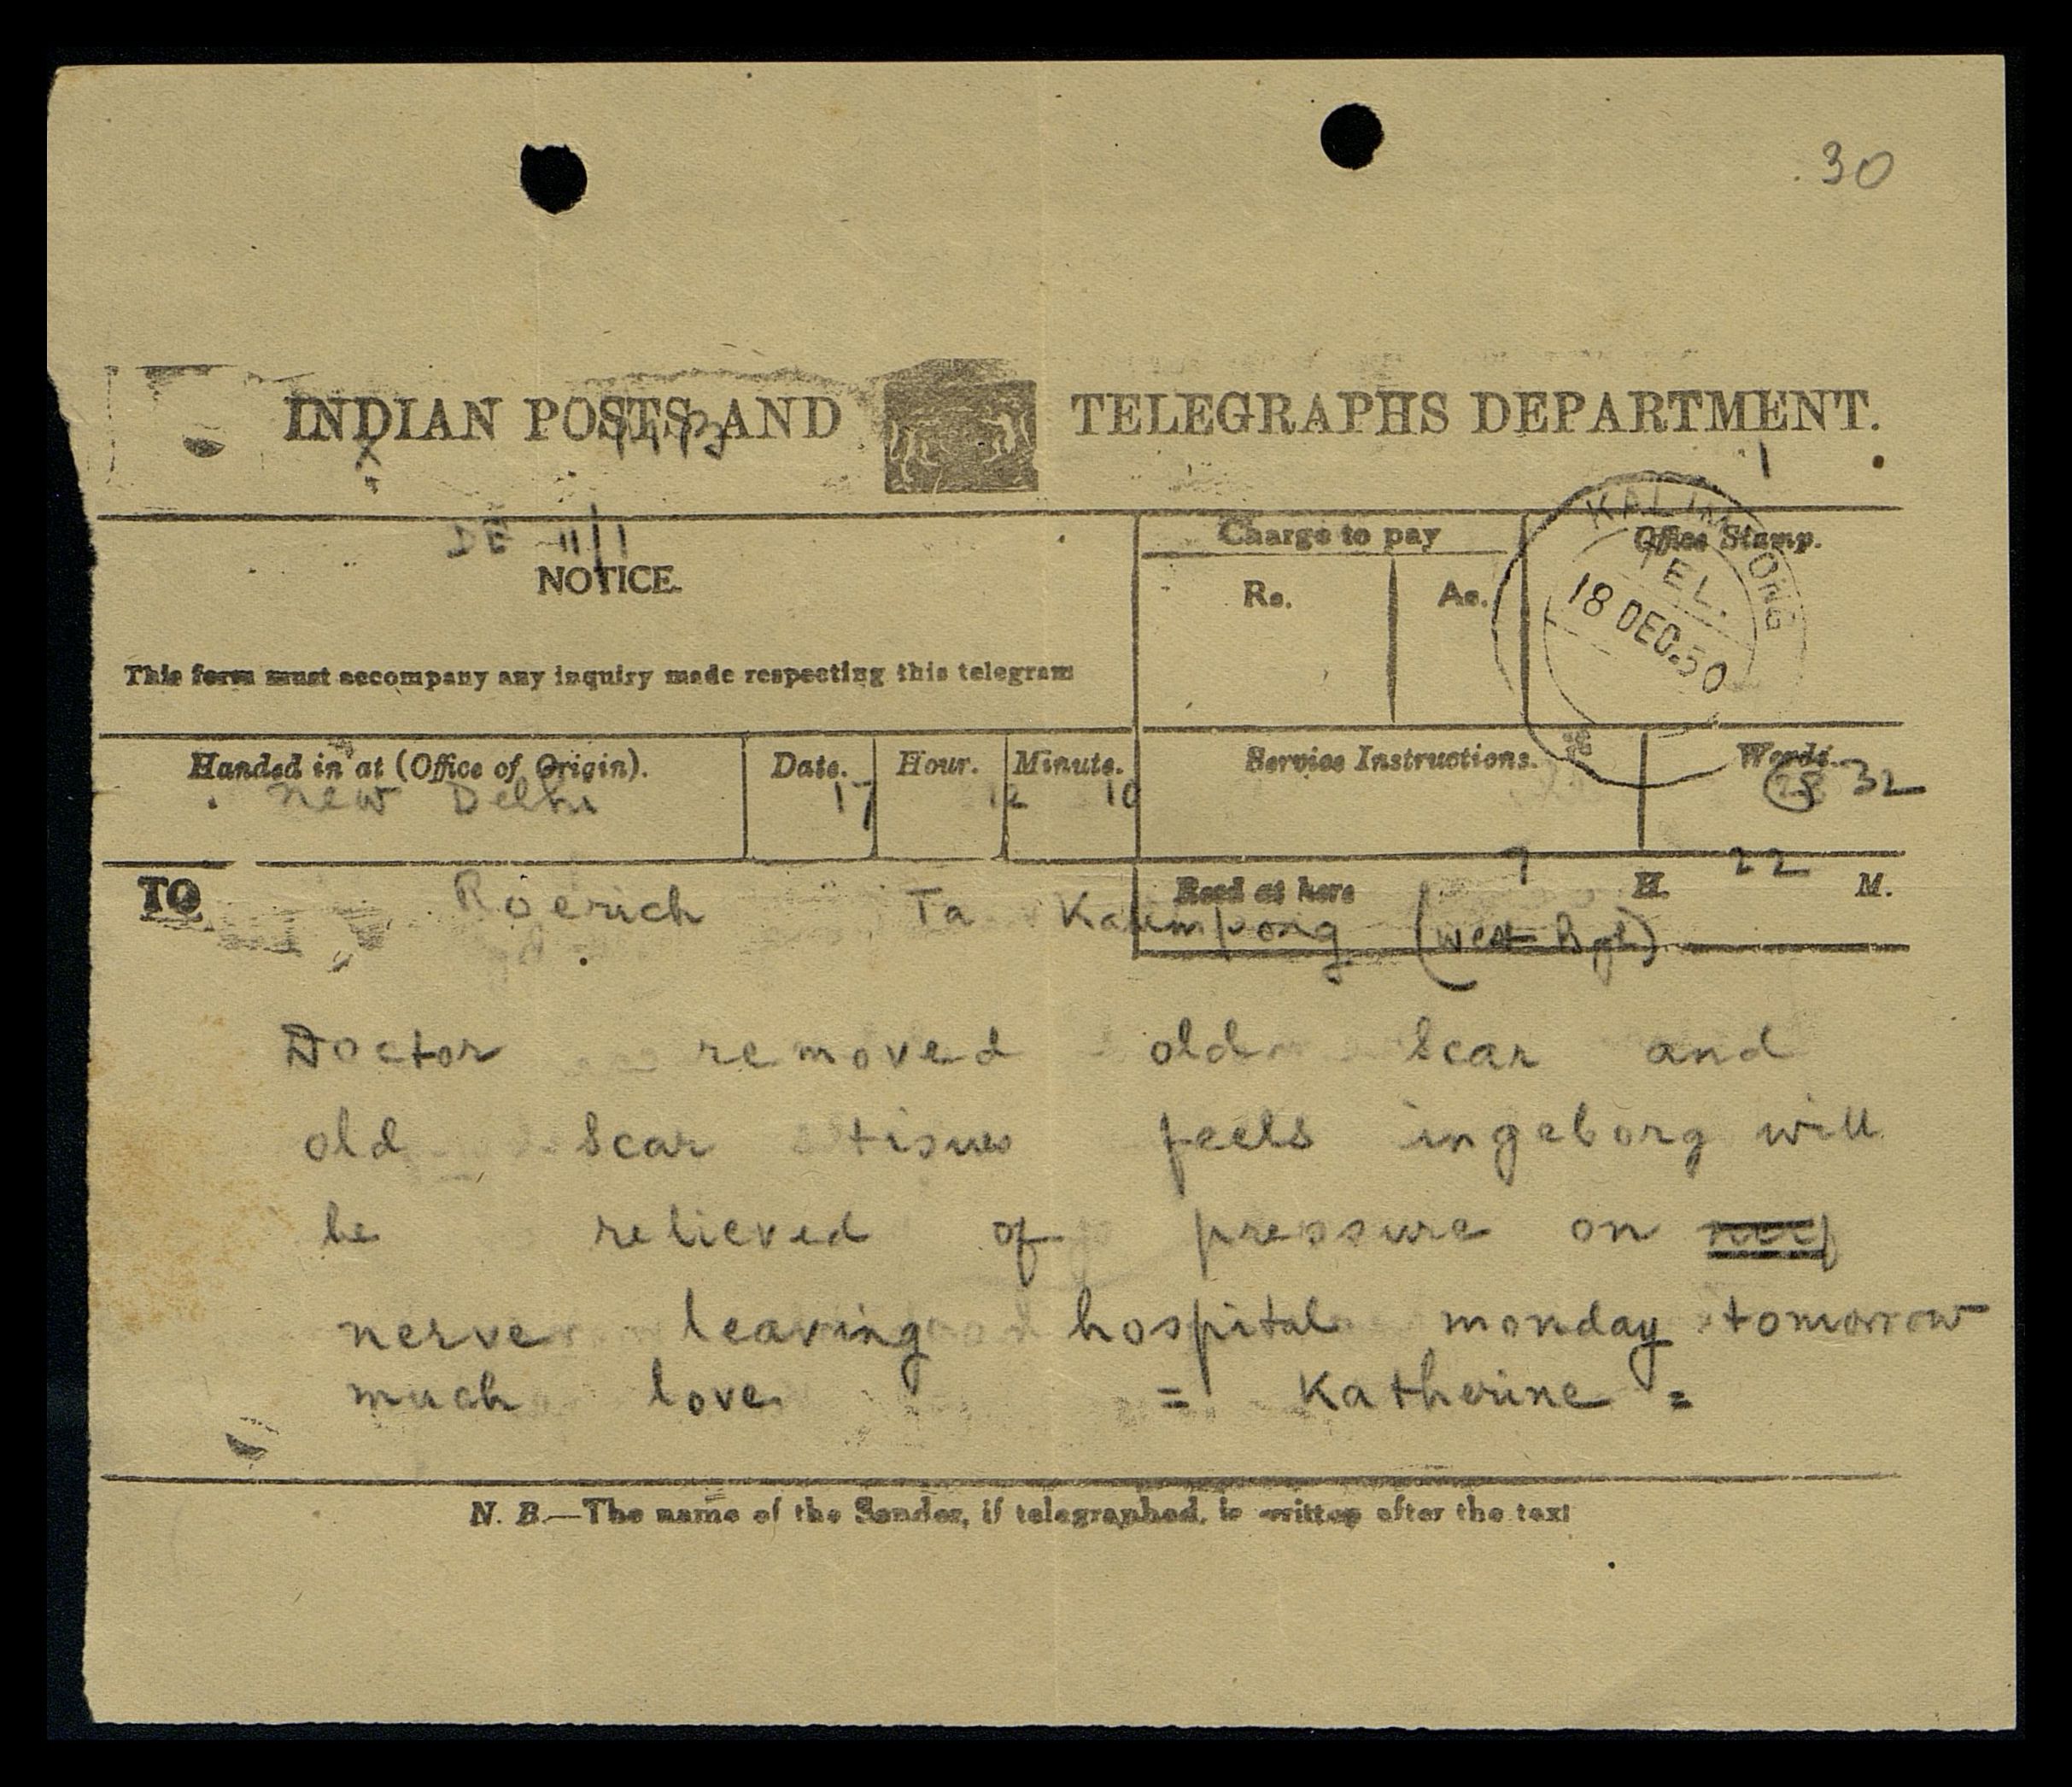 30
INDIAN POSTS AND TELEGRAPHS DEPARTMENT.
X 1
DE 11/1
NOTICE.
This form must accompany any inquiry made respecting this telegram
Charge to pay
Rs. As.
Office Stamp.
KALIMPONG
TEL.
18 DEC. 50
Handed in at (Office of Origin). Date. Hour. Minute. Service Instructions. Words.
New Delhi 17 12 10 28 32
TO Roerich Ta Kalimpong (West Bgl)
Recd at here 9 H. 22 M.
Doctor removed old scar and
old scar tisues feels ingeborg will
be relieved of pressure on
nerve leaving hospital monday tomorrow
much love = Katherine =
N. B.—The name of the Sender, if telegraphed, is written after the text